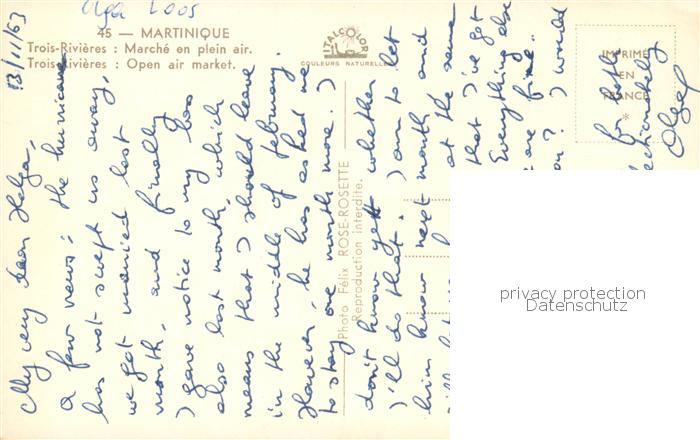 Olga Loos
13/11/63
45 — MARTINIQUE
Trois-Rivières : Marché en plein air.
Trois-Rivières : Open air market.
ITALCOLOR
COULEURS NATURELLES
IMPRIMÉ
EN
FRANCE
*
Photo Félix ROSE-ROSETTE
Reproduction interdite.
My very dear Helga,
a few news: the hurricane
has not swept us away,
we got married last
month, and finally
I gave notice to my boss
also last month, which
means that I should leave
in the middle of february.
However, he has asked me
to stay one month more. I
don't know yet whether
I'll do that. I am to let
him know next month and
at the same
that I've got
Everything else
are fine..
? I would
for both
Olga
privacy protection
Datenschutz